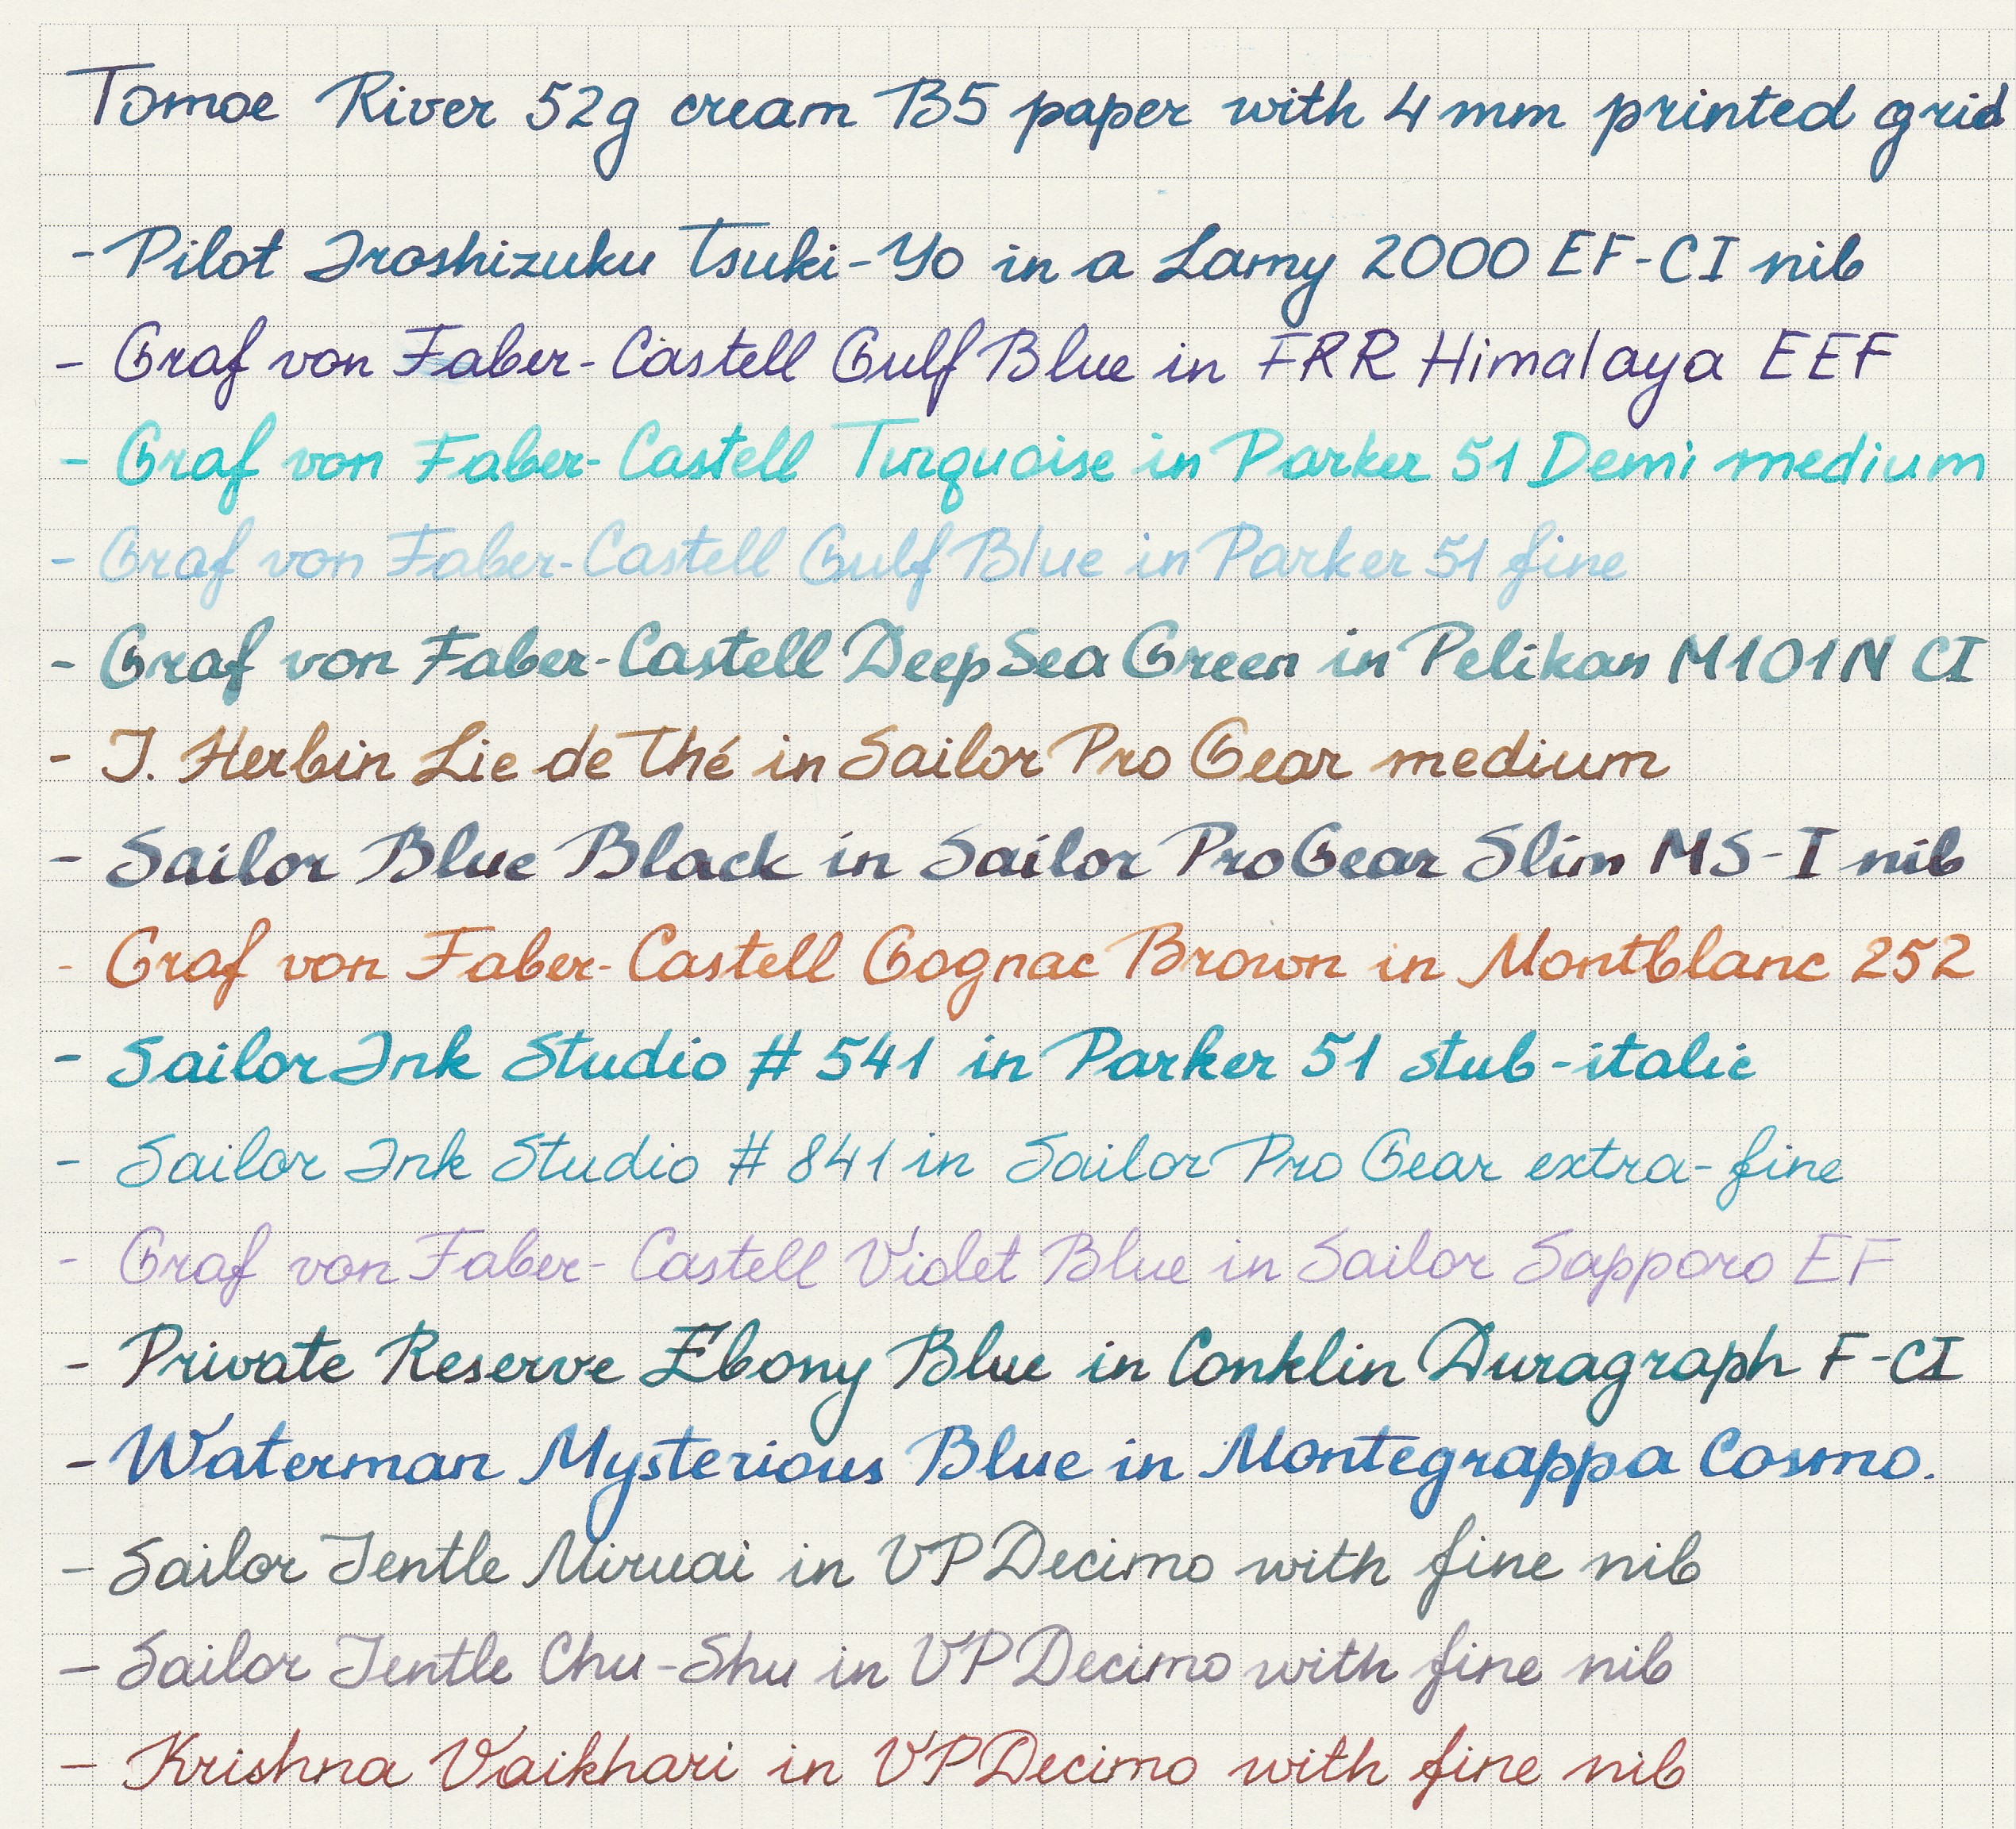 Tomoe River 52g cream B5 paper with 4 mm printed grid
- Pilot Iroshizuku Tsuki-Yo in a Lamy 2000 EF-CI nib
- Graf von Faber-Castell Gulf Blue in FRR Himalaya EEF
- Graf von Faber-Castell Turquoise in Parker 51 Demi medium
- Graf von Faber-Castell Gulf Blue in Parker 51 fine
- Graf von Faber-Castell Deep Sea Green in Pelikan M101N CI
- J. Herbin Lie de Thé in Sailor Pro Gear medium
- Sailor Blue Black in Sailor Pro Gear Slim MS-I nib
- Graf von Faber-Castell Cognac Brown in Montblanc 252
- Sailor Ink Studio # 541 in Parker 51 stub-italic
- Sailor Ink Studio # 841 in Sailor Pro Gear extra-fine
- Graf von Faber-Castell Violet Blue in Sailor Sapporo EF
- Private Reserve Ebony Blue in Conklin Duragraph F-CI
- Waterman Mysterious Blue in Montegrappa Cosmo.
- Sailor Jentle Miruai in VP Decimo with fine nib
- Sailor Jentle Chu-Shu in VP Decimo with fine nib
- Krishna Vaikhari in VP Decimo with fine nib